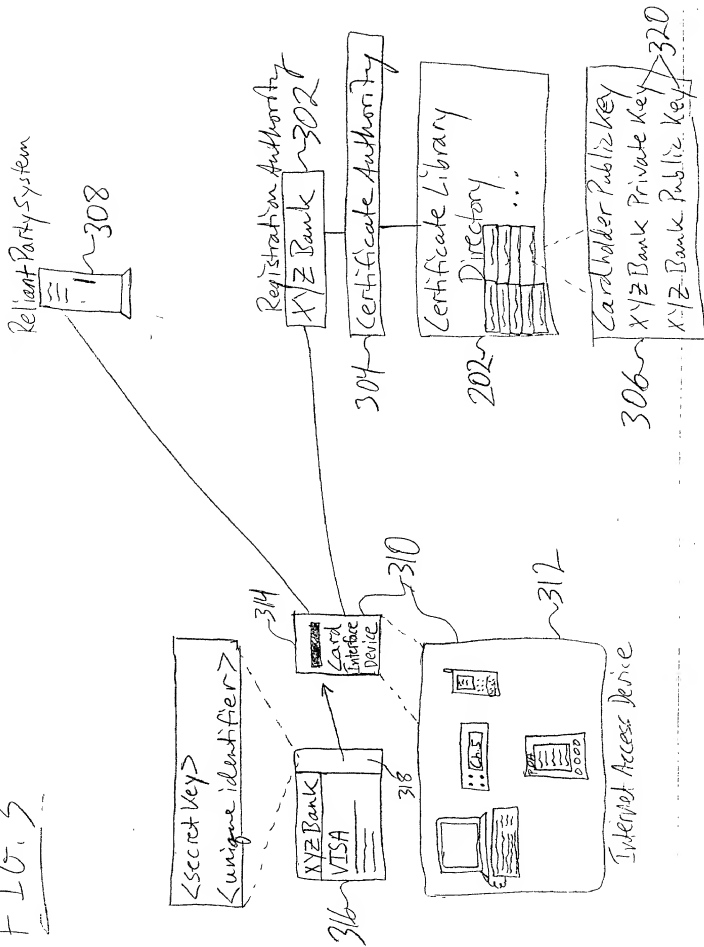 FIG. 3
Reliant Party System
308
Registration Authority
XYZ Bank
302
304
Certificate Authority
Certificate Library
Directory
...
202
Cardholder Public Key
XYZ Bank Private Key
XYZ Bank Public Key
306
320
<secret key>
<unique identifier>
314
Card
Interface
Device
310
XYZ Bank
VISA
316
318
312
Ch.5
PDA
Internet Access Device